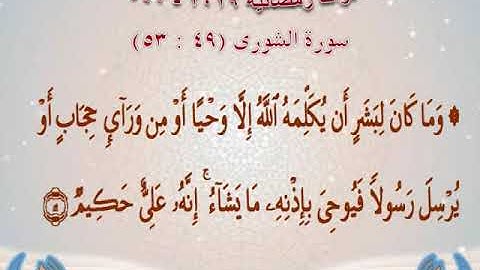 سورة الشورى (٤٩ : ٥٣)
۞ وَمَا كَانَ لِبَشَرٍ أَن يُكَلِّمَهُ ٱللَّهُ إِلَّا وَحْيًا أَوْ مِن وَرَآئِ حِجَابٍ أَوْ
يُرْسِلَ رَسُولاً فَيُوحِىَ بِإِذْنِهِۦ مَا يَشَآءُ ۚ إِنَّهُۥ عَلِىٌّ حَكِيمٌ